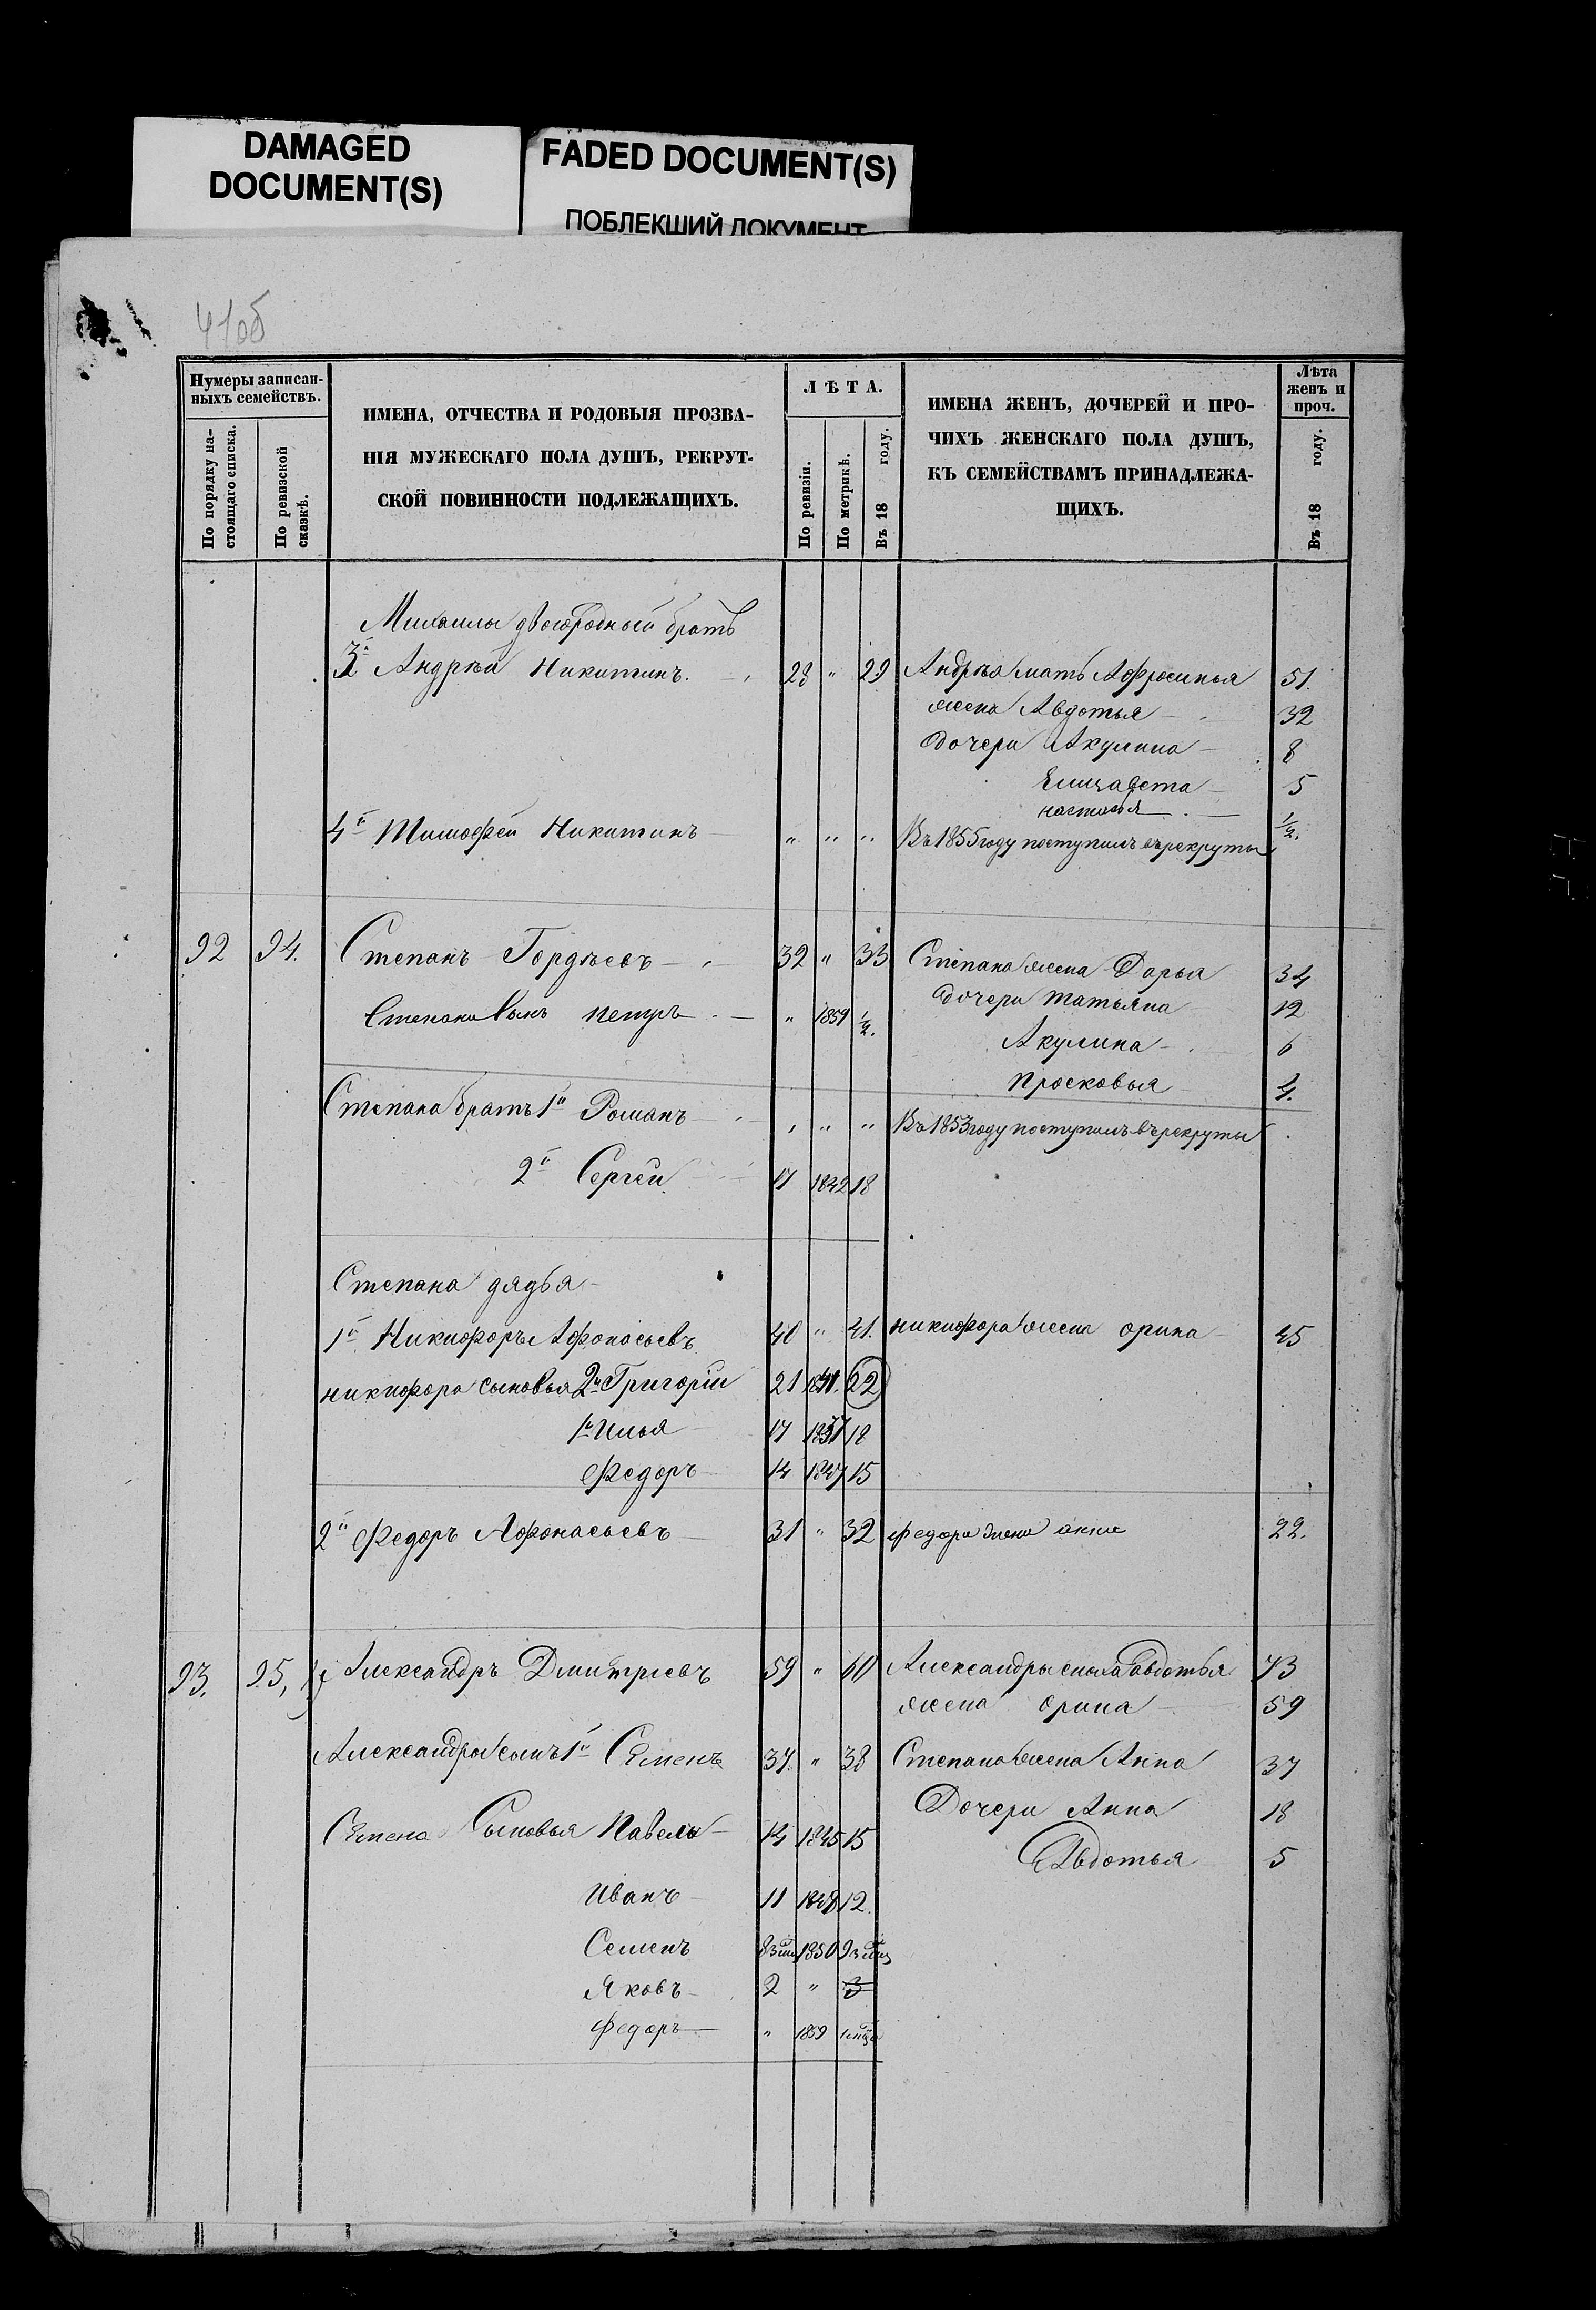 DAMAGED
DOCUMENT(S)
FADED DOCUMENT(S)
ПОБЛЕКШИЙ ДОКУМЕНТ
41об
Нумеры записан-
ныхъ семействъ.
По порядку на-
стоящаго списка.
По ревизской
сказкѣ.
ИМЕНА, ОТЧЕСТВА И РОДОВЫЯ ПРОЗВА-
НІЯ МУЖЕСКАГО ПОЛА ДУШЪ, РЕКРУТ-
СКОЙ ПОВИННОСТИ ПОДЛЕЖАЩИХЪ.
ЛѢТА.
По ревизіи.
По метрикѣ.
Въ 18 году.
ИМЕНА ЖЕНЪ, ДОЧЕРЕЙ И ПРО-
ЧИХЪ ЖЕНСКАГО ПОЛА ДУШЪ,
КЪ СЕМЕЙСТВАМЪ ПРИНАДЛЕЖА-
ЩИХЪ.
Лѣта
женъ и
проч.
Въ 18 году.
Михаилы двоюродный братъ
3й Андрѣй Никитинъ. 28 " 29 Андрѣя мать Афросинья 51.
жена Авдотья 32
дочери Акулина 8
Елизавета 5
настасья 1/2.
4й Тимофей Никитинъ " " " Въ 1855 году поступилъ въ рекруты
92 94. Степанъ Гордѣевъ 32 " 33 Степана жена Дарья 34
дочери татьяна 12
Степана сынъ петръ " 1859 1/2.
Акулина 6
просковья 4.
Степана братъ 1й Романъ " " " Въ 1853 году поступилъ въ рекруты
2й Сергей 17 1842 18
Степана дядья
1й Никифоръ Афонасьевъ 40 " 41. никифора жена орина 45
никифора сыновья 2й Григорій 21 22
1й Илья 17 18
Федоръ 14 15
2й Федоръ Афонасьевъ 31 " 32 федора жена анна 22.
93. 95, Александръ Дмитріевъ 59 " 60 Александры сноха авдотья 43
жена орина 59
Александры сынъ 1й Семенъ 37. " 38 Степана жена Анна 37
Дочери Анна 18
Семена Сыновья Павелъ 14 1845 15
Авдотья 5
Иванъ 11 1848 12.
Семенъ 1850
Яковъ 2 " 3
Федоръ " 1859